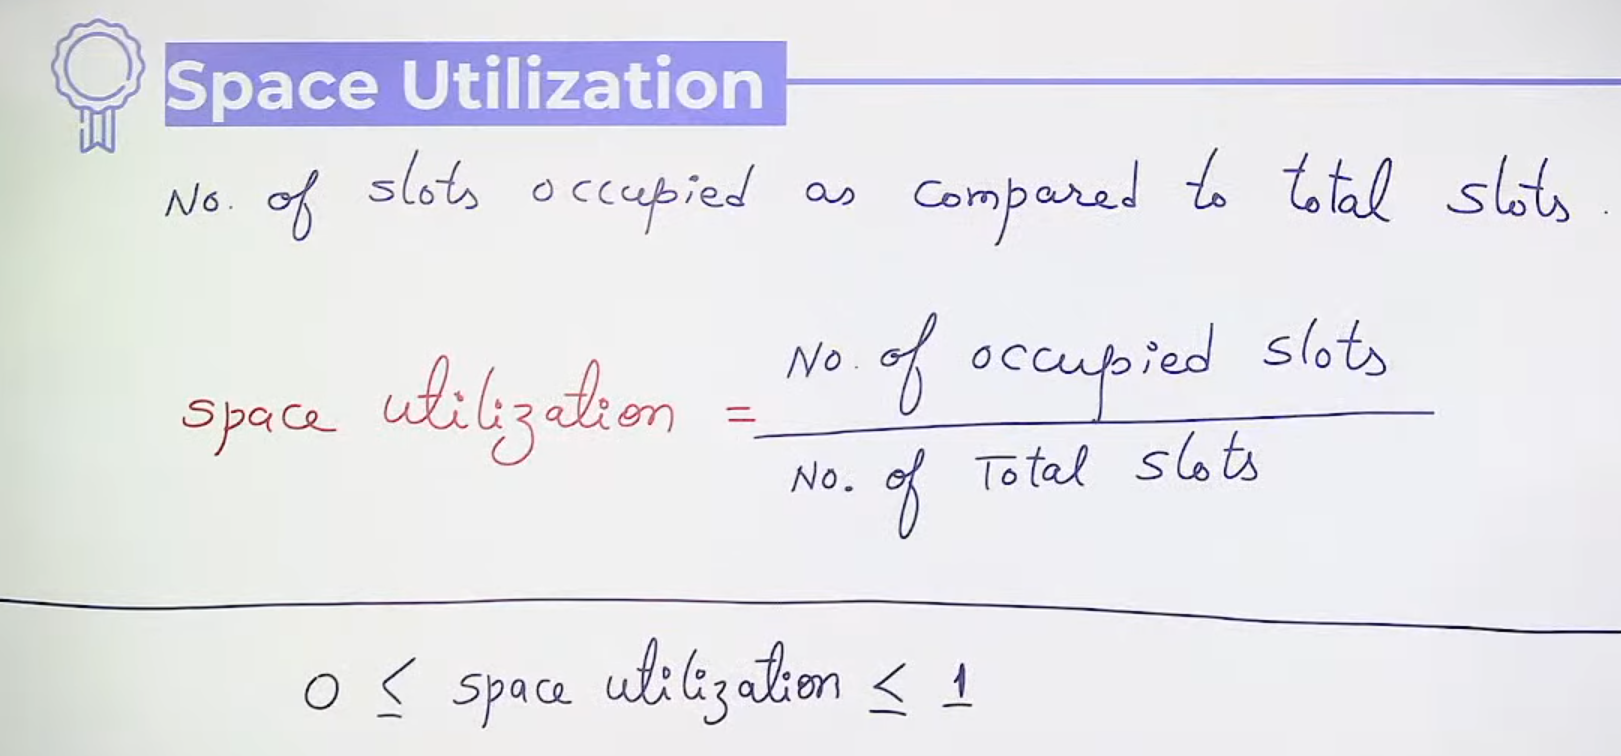 Space Utilization
No. of slots occupied as compared to total slots.
space utilization = No. of occupied slots
No. of Total slots
0 ≤ space utilization ≤ 1